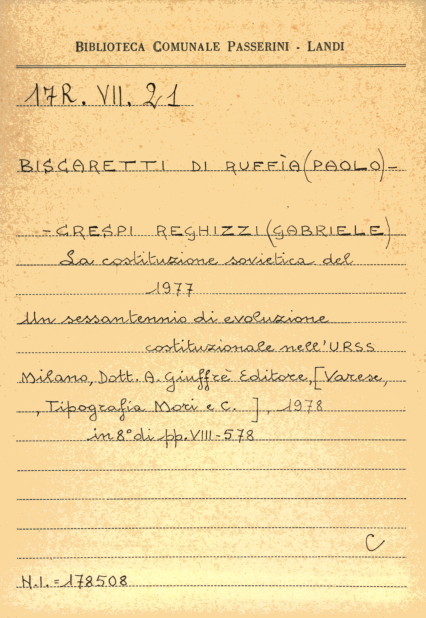 BIBLIOTECA COMUNALE PASSERINI - LANDI
17R. VII. 21
BISCARETTI DI RUFFÌA (PAOLO) -
- CRESPI REGHIZZI (GABRIELE)
La costituzione sovietica del
1977
Un sessantennio di evoluzione
costituzionale nell'URSS
Milano, Dott. A. Giuffrè Editore, [Varese,
, Tipografia Mori e C. ] , 1978
in 8° di pp. VIII-578
C
N.I. = 178508